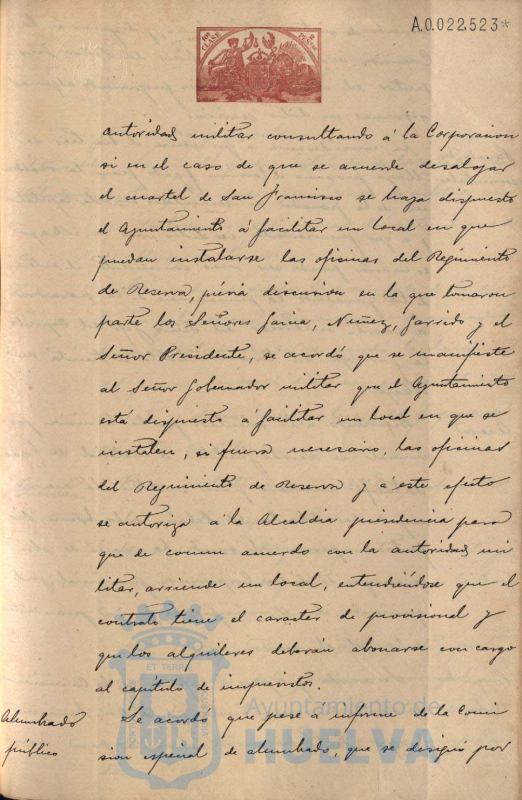 A.0.022.523*
autoridad militar consultando á la Corporacion
si en el caso de que se acuerde desalojar
el cuartel de San Francisco se haya dispuesto
el Ayuntamiento á facilitar un local en que
puedan instalarse las oficinas del Regimiento
de Reserva, prévia discusion en la que tomaron
parte los Señores Garcia, Nuñez, Garrido y el
Señor Presidente, se acordó que se manifieste
al Señor Gobernador militar que el Ayuntamiento
está dispuesto á facilitar un local en que se
instalen, si fuera necesario, las oficinas
del Regimiento de Reserva y á este efecto
se autoriza á la Alcaldia presidencia para
que de comun acuerdo con la autoridad mi
litar, arriende un local, entendiéndose que el
contrato tiene el caracter de provisional y
que los alquileres deberán abonarse con cargo
al capitulo de imprevistos.
Alumbrado
público
Se acordó que pase á informe de la Comi
sion especial de alumbrado, que se designó por
ET TERRAE
Ayuntamiento de
HUELVA